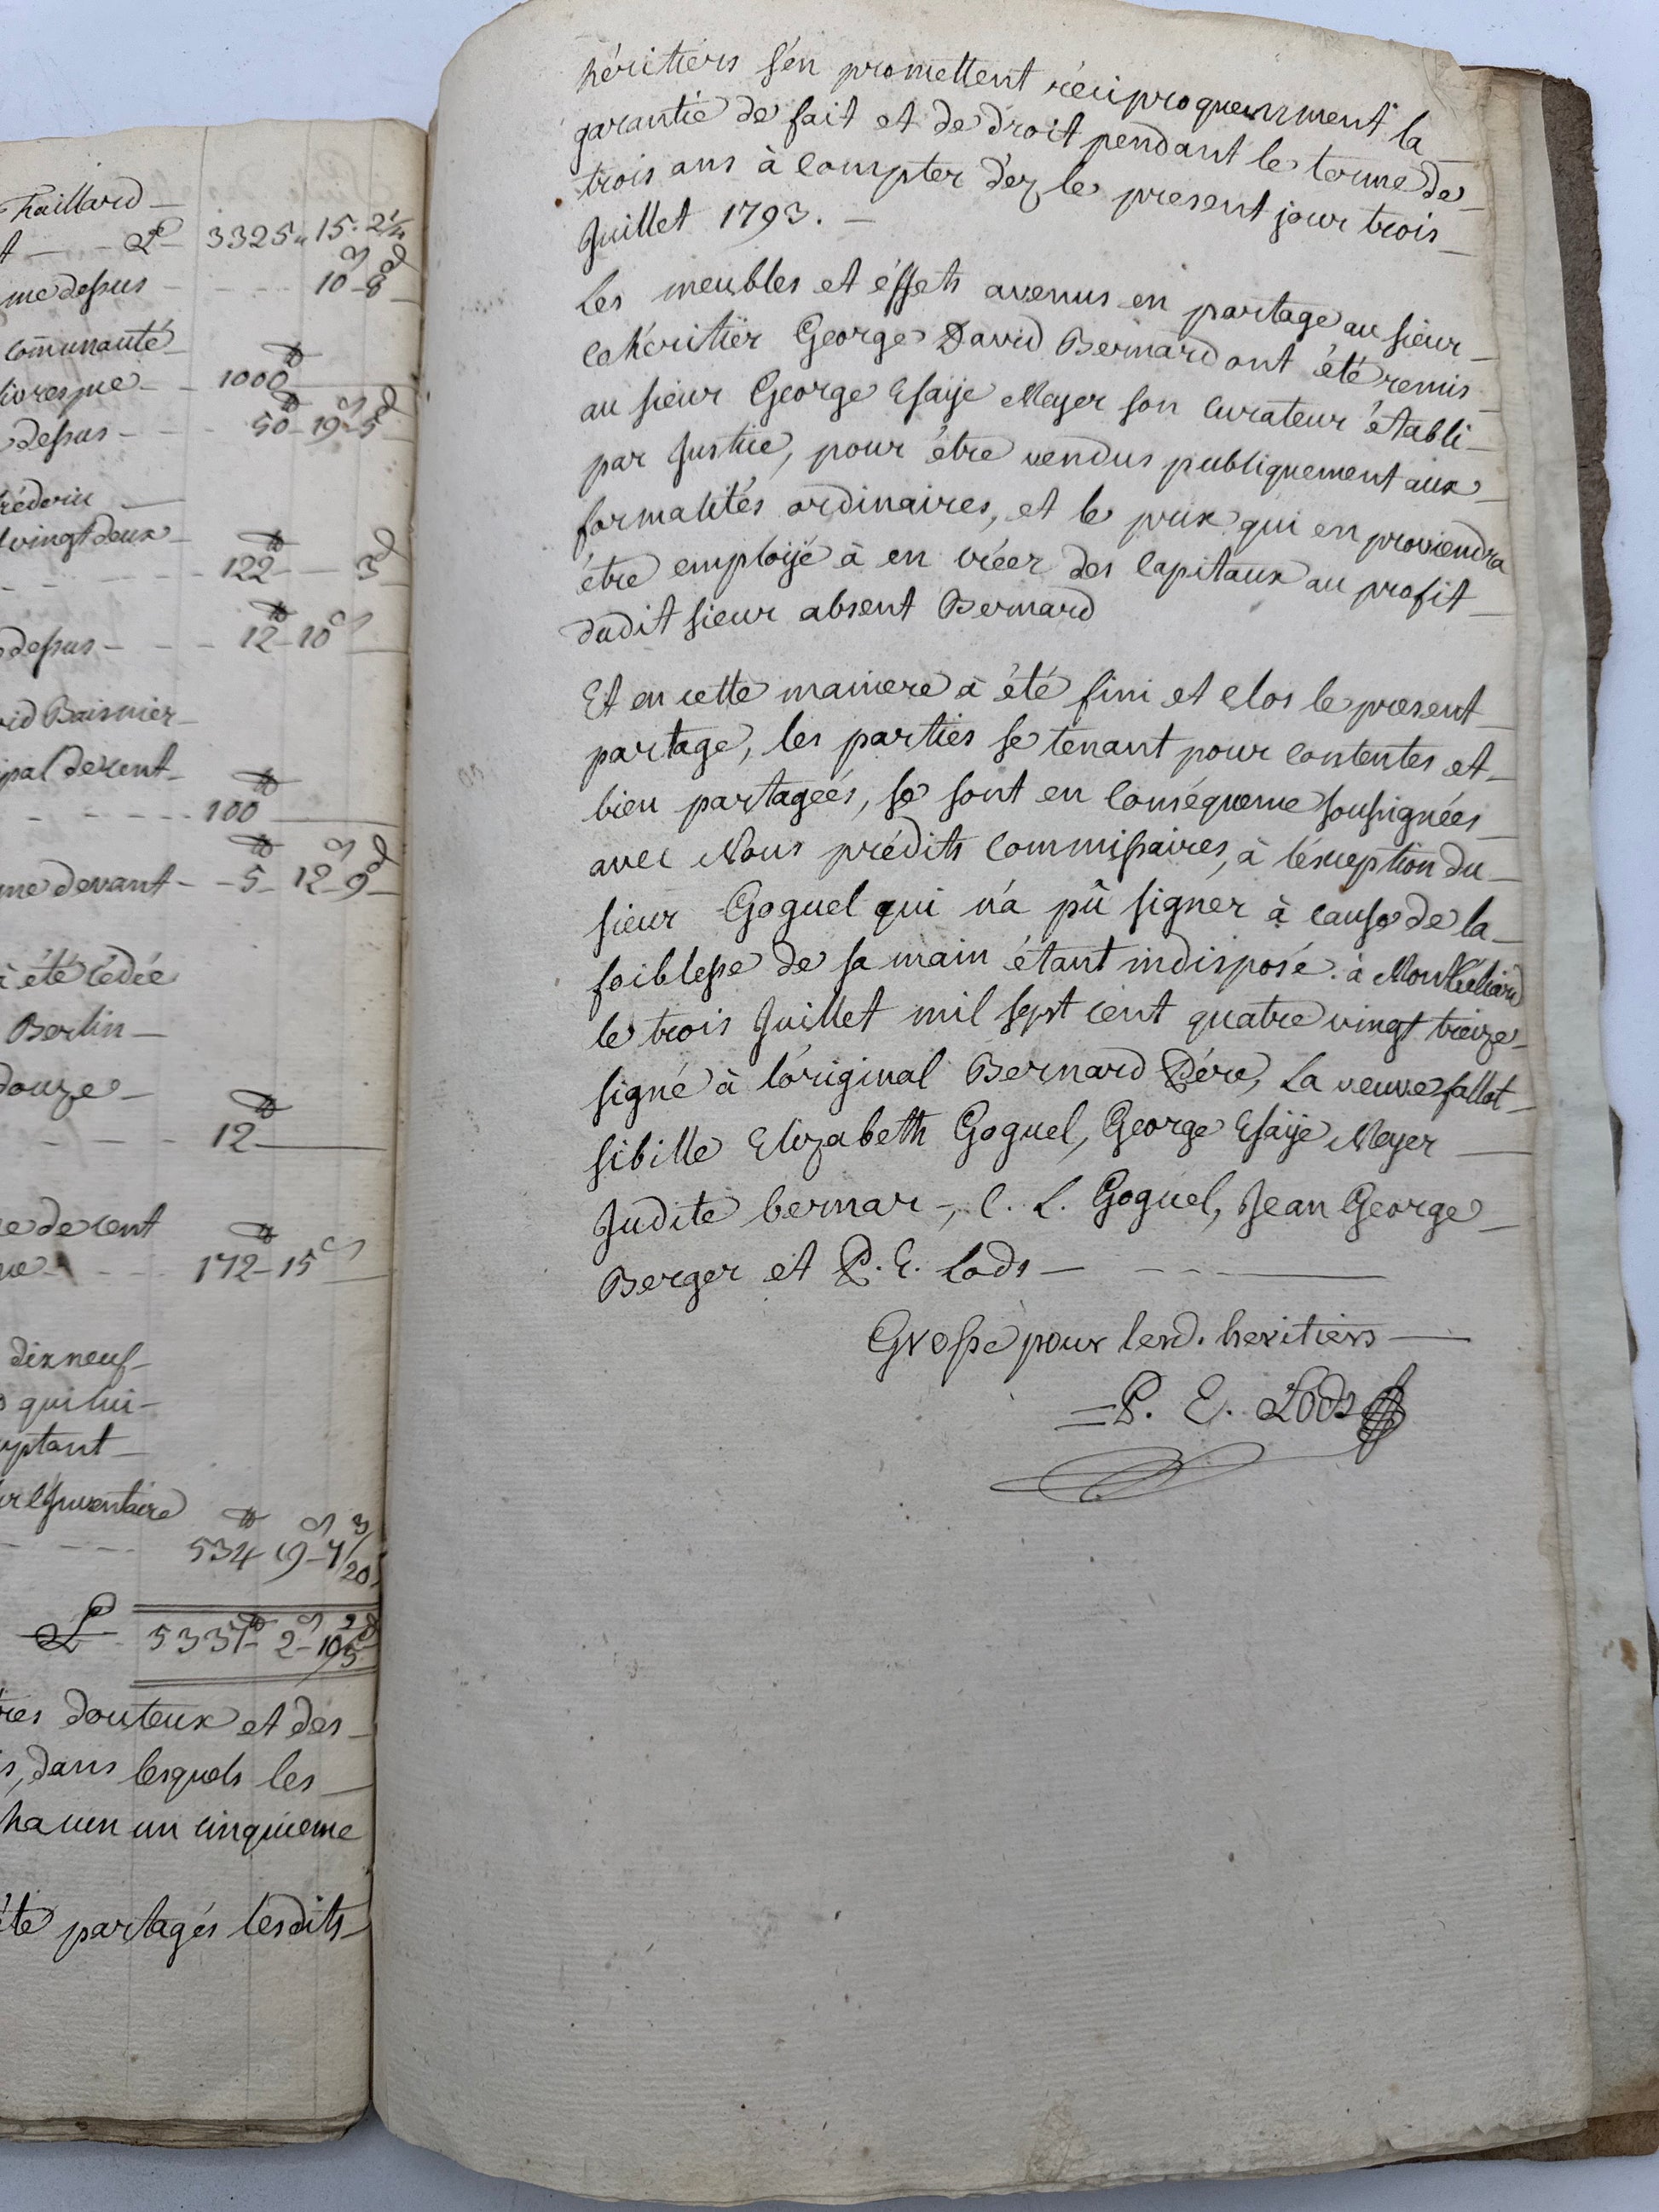 Faillard
t - - £ 3325 " 15 - 2 1/4
me dessus - - - 10 - 8
communauté
livres, me - - 1000
dessus - - - 50 - 19 - 5
réderic
vingt deux
- - - - 122 - 3
dessus - - - 12 - 10
id Baisnier
ipal de cent
- - - - 100
me devant - - 5 - 12 - 9
a été cédée
Berlin
douze
- - - - 12
e de cent
- - - 172 - 15
dix neuf
qui lui
mptant
l'Inventaire
- - - 534 - 19 - 7 3/20
£ - 5337 - 2 - 10 2/5
res douteux et des
s, dans lesquels les
hacun un cinquieme
été partagés lesdits
héritiers s'én promettent réciproquemment la
garantie de fait et de droit pendant le terme de
trois ans à compter déz le present jour trois
Juillet 1793. -
Les meubles et éffets avenus en partage au sieur
cohéritiër George David Bernard ont été remis
au sieur George Esaÿe Meyer son curateur établi
par Justice, pour être vendus publiquement aux
formalités ordinaires, et le prix qui en proviendra
être emploÿé à en créer des capitaux au profit
dudit sieur absent Bernard
Et en cette maniere à été fini et clos le present
partage, les parties se tenant pour contentes et
bien partageés, se sont en conséquence soussignées
avec Nous prédits commissaires, à léxception du
sieur Goguel qui n'a pû signer à cause de la
foiblesse de sa main étant indisposé. à Montbéliard
le trois Juillet mil sept cent quatre vingt treize
signé à l'original Bernard Pére, La veuve fallot
sibille Elizabeth Goguel, George Esaÿe Meyer
Judite bernar -, C. L. Goguel, Jean George
Berger et P. E. Lods - - - -
Grosse pour lesd. heritiers
= P. E. Lods